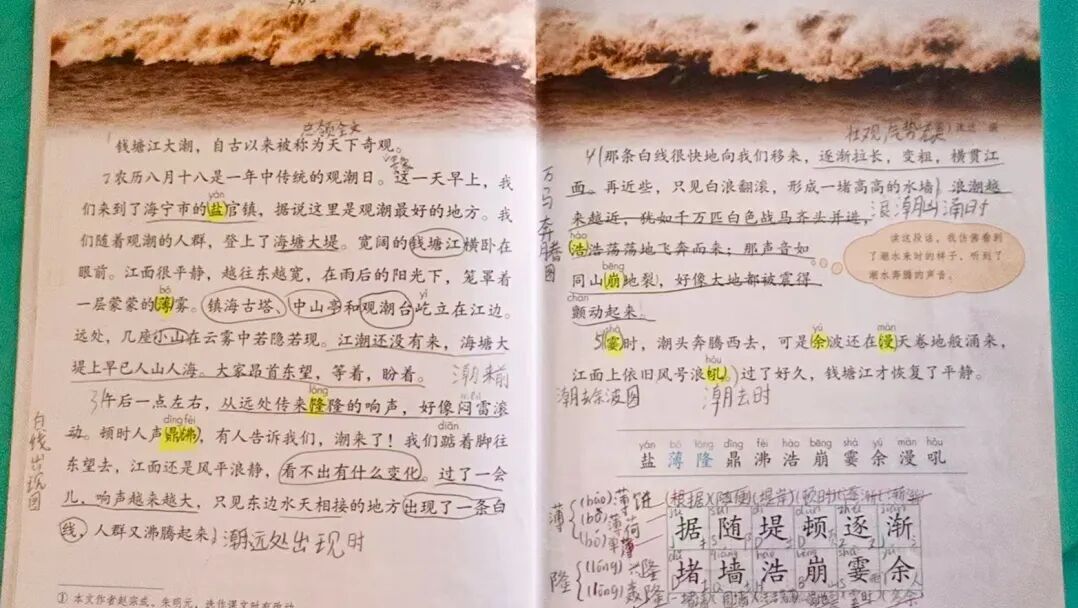 总领全文
钱塘江大潮，自古以来被称为天下奇观。
农历八月十八是一年中传统的观潮日。这一天早上，我
yán
们来到了海宁市的盐官镇，据说这里是观潮最好的地方。我
们随着观潮的人群，登上了海塘大堤。宽阔的钱塘江横卧在
眼前。江面很平静，越往东越宽，在雨后的阳光下，笼罩着
bó yì
一层蒙蒙的薄雾。镇海古塔、中山亭和观潮台屹立在江边。
远处，几座小山在云雾中若隐若现。江潮还没有来，海塘大
堤上早已人山人海。大家昂首东望，等着，盼着。 潮来前
lóng
3 午后一点左右，从远处传来隆隆的响声，好像闷雷滚
dǐng fèi diǎn
动。顿时人声鼎沸，有人告诉我们，潮来了！我们踮着脚往
东望去，江面还是风平浪静，看不出有什么变化。过了一会
儿，响声越来越大，只见东边水天相接的地方出现了一条白
线，人群又沸腾起来。 潮远处出现时
白线出现图
① 本文作者赵宗成、朱明元，选作课文时有改动。
壮观 气势
4 那条白线很快地向我们移来，逐渐拉长，变粗，横贯江
面。再近些，只见白浪翻滚，形成一堵高高的水墙。浪潮越
来越近，犹如千万匹白色战马齐头并进， 浪潮汹涌时
hào
浩浩荡荡地飞奔而来；那声音如
bēng
同山崩地裂，好像大地都被震得
chàn
颤动起来。
万马奔腾图
读这段话，我仿佛看到
了潮水来时的样子，听到了
潮水奔腾的声音。
shà yú màn
5 霎时，潮头奔腾西去，可是余波还在漫天卷地般涌来，
hǒu
江面上依旧风号浪吼。过了好久，钱塘江才恢复了平静。
潮去余波图 潮去时
yán bó lóng dǐng fèi hào bēng shà yú màn hǒu
盐 薄 隆 鼎 沸 浩 崩 霎 余 漫 吼
薄 (báo) 薄饼
(bò) 薄荷
(bó) 单薄
隆 (lóng) 兴隆
(lōng) 轰隆
(根据)(随便)(堤岸)(顿时)
据 随 堤 顿 逐 渐
堵 墙 浩 崩 霎 余